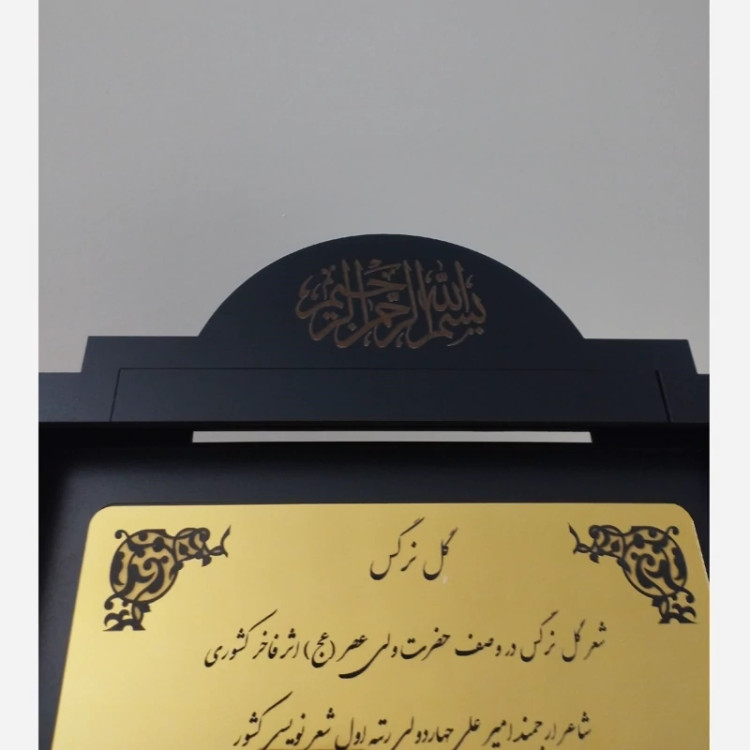 بسم الله الرحمن الرحیم
گل نرگس
شعر گل نرگس در وصف حضرت ولی عصر (عج) اثر فاخر کشوری
شاعر ارجمند امیر علی چهاردولی رتبه اول شعر نویسی کشور